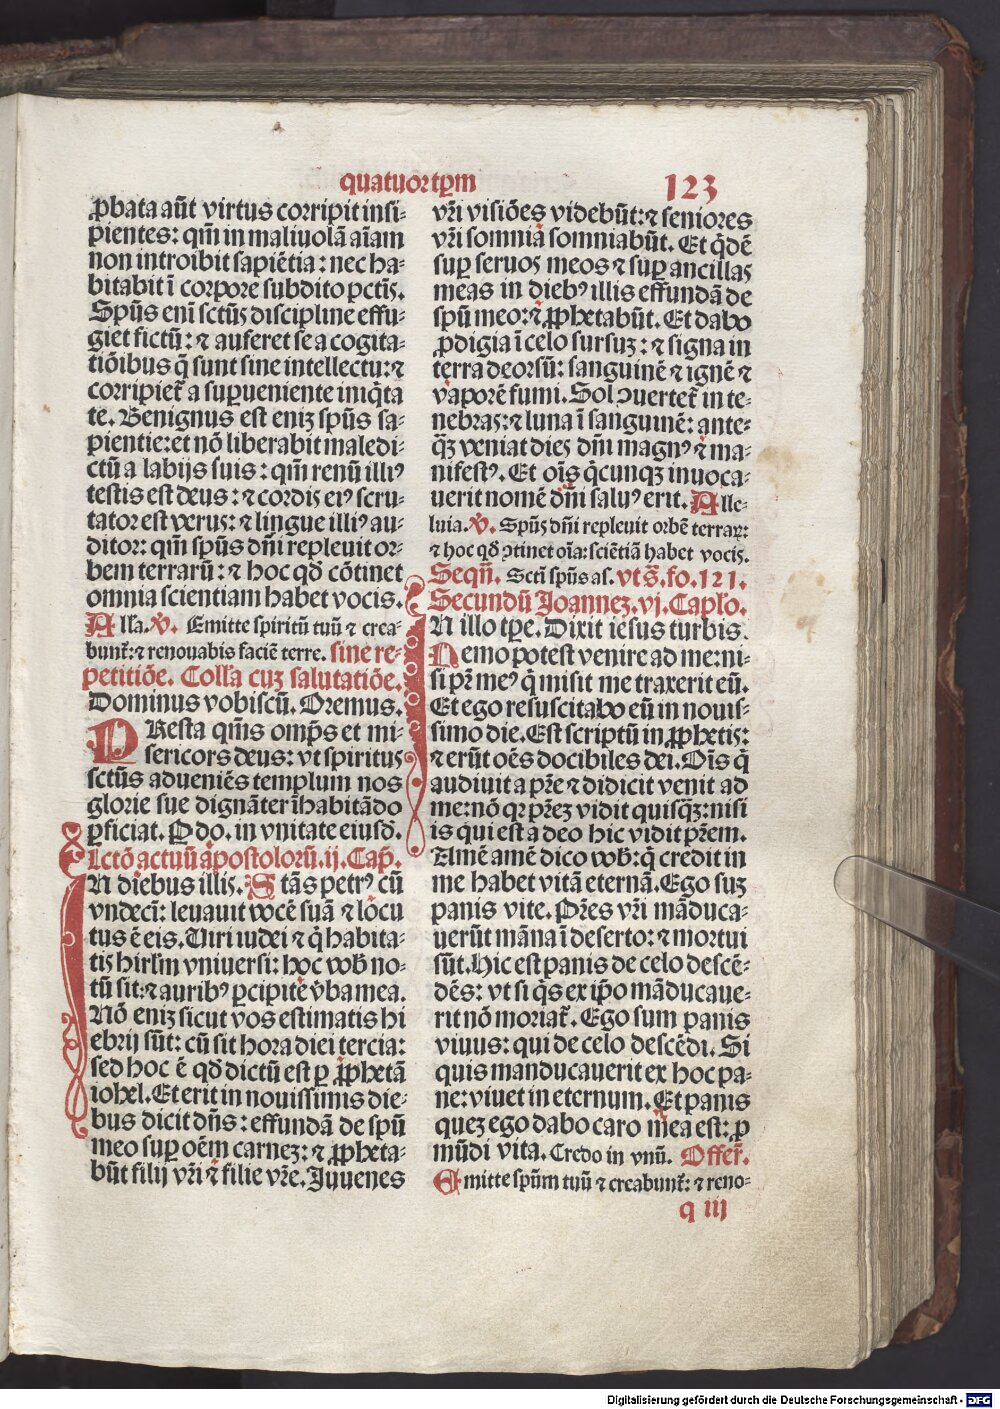 quatuortꝑm
123
ꝓbata aūt virtus corripit insi-
pientes: qm̄ in maliuolā aīam
non introibit sapiētia: nec ha-
bitabit ī corpore subdito pctīs.
Spūs enī sctūs discipline effu-
giet fictū: ⁊ auferet se a cogita-
tiōibus q̄ sunt sine intellectu: ⁊
corripiet᷑ a suꝑueniente iniq̄ta
te. Benignus est eniꝫ spūs sa-
pientie: et nō liberabit maledi-
ctū a labijs suis: qm̄ renū illiꝰ
testis est deus: ⁊ cordis eiꝰ scru-
tator est verus: ⁊ lingue illiꝰ au-
ditor: qm̄ spūs dn̄i repleuit or-
bem terrarū: ⁊ hoc qd̄ cōtinet
omnia scientiam habet vocis.
Alla. ℣. Emitte spiritū tuū ⁊ crea-
bunt᷑: ⁊ renouabis faciē terre. sine re-
petitiōe. Colla cuꝫ salutatiōe.
Dominus vobiscū. Oremus.
PResta qm̄s omp̄s et mi-
sericors deus: vt spiritus
sctūs adueniēs templum nos
glorie sue dignāter īhabitādo
ꝑficiat. P do. in vnitate eiusd.
Lctō actuū apostolorū. ij. Cap̄.
IN diebus illis. Stās petrꝰ cū
vndecī: leuauit vocē suā ⁊ locu
tus ē eis. Uiri iudei ⁊ q̄ habita-
tis hirlm̄ vniuersi: hoc vob̄ no-
tū sit: ⁊ auribꝰ ꝑcipite v̄ba mea.
Nō eniꝫ sicut vos estimatis hi
ebrij sūt: cū sit hora diei tercia:
sed hoc ē qd̄ dictū est ꝑ ꝓphetā
iohel. Et erit in nouissimis die-
bus dicit dn̄s: effundā de spū
meo suꝑ oēm carneꝫ: ⁊ ꝓpheta-
būt filij vr̄i ⁊ filie vr̄e. Juuenes
vr̄i visiōes videbūt: ⁊ seniores
vr̄i somnia somniabūt. Et q̄dē
suꝑ seruos meos ⁊ suꝑ ancillas
meas in diebꝰ illis effundā de
spū meo: ⁊ ꝓphetabūt. Et dabo
ꝓdigia ī celo sursuꝫ: ⁊ signa in
terra deorsū: sanguinē ⁊ ignē ⁊
vaporē fumi. Sol ꝯuertet᷑ in te-
nebras: ⁊ luna ī sanguinē: ante-
q̄ꝫ veniat dies dn̄i magnꝰ ⁊ ma-
nifestꝰ. Et oīs q̄cunqꝫ inuoca-
uerit nomē dn̄i saluꝰ erit. Alle-
luia. ℣. Spūs dn̄i repleuit orbē terraꝝ:
⁊ hoc qd̄ ꝯtinet oīa: sciētiā habet vocis.
Seqn̄. Sctī spūs as. vt s̄. fo. 121.
Secundū Joanneꝫ. vj. Caplo.
IN illo tꝑe. Dixit iesus turbis.
Nemo potest venire ad me: ni-
si pr̄ meꝰ q̄ misit me traxerit eū.
Et ego resuscitabo eū in nouis-
simo die. Est scriptū in ꝓphetis:
⁊ erūt oēs docibiles dei. Oīs q̄
audiuit a pr̄e ⁊ didicit venit ad
me: nō qꝛ pr̄eꝫ vidit quisqꝫ: nisi
is qui est a deo hic vidit pr̄em.
Amē amē dico vob̄: q̄ credit in
me habet vitā eternā. Ego suꝫ
panis vite. Pr̄es vr̄i māduca-
uerūt māna ī deserto: ⁊ mortui
sūt. Hic est panis de celo descē-
dēs: vt si q̄s ex ip̄o māducaue-
rit nō moriat᷑. Ego sum panis
viuus: qui de celo descēdi. Si
quis manducauerit ex hoc pa-
ne: viuet in eternum. Et panis
queꝫ ego dabo caro mea est: ꝓ
mūdi vita. Credo in vnū. Offer᷑.
Emitte spūm tuū ⁊ creabunt᷑: ⁊ reno-
q iij
Digitalisierung gefördert durch die Deutsche Forschungsgemeinschaft - DFG